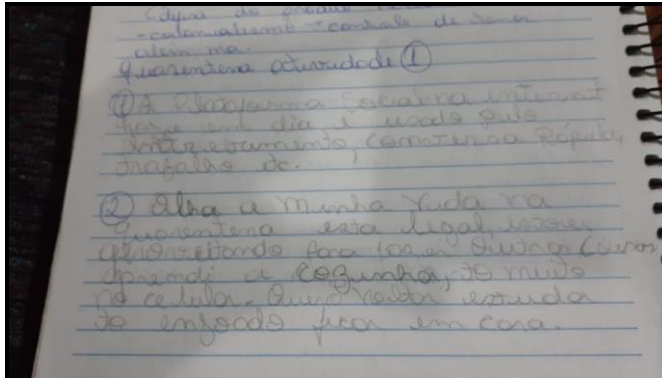 do
-colonialismo -controle de
alem ma.
quarentena atividade ①
① A Plataforma Social na internet
hoje em dia é usado pelo
entretenimento, Comversa Rápida,
trabalho etc.
② Olha a minha vida na
quarentena esta legal, estou
aproveitando para fazer Outras Coisas
aprendi a cozinha, to muito
no celula. Quero volta estuda
to enjoado fica em casa.